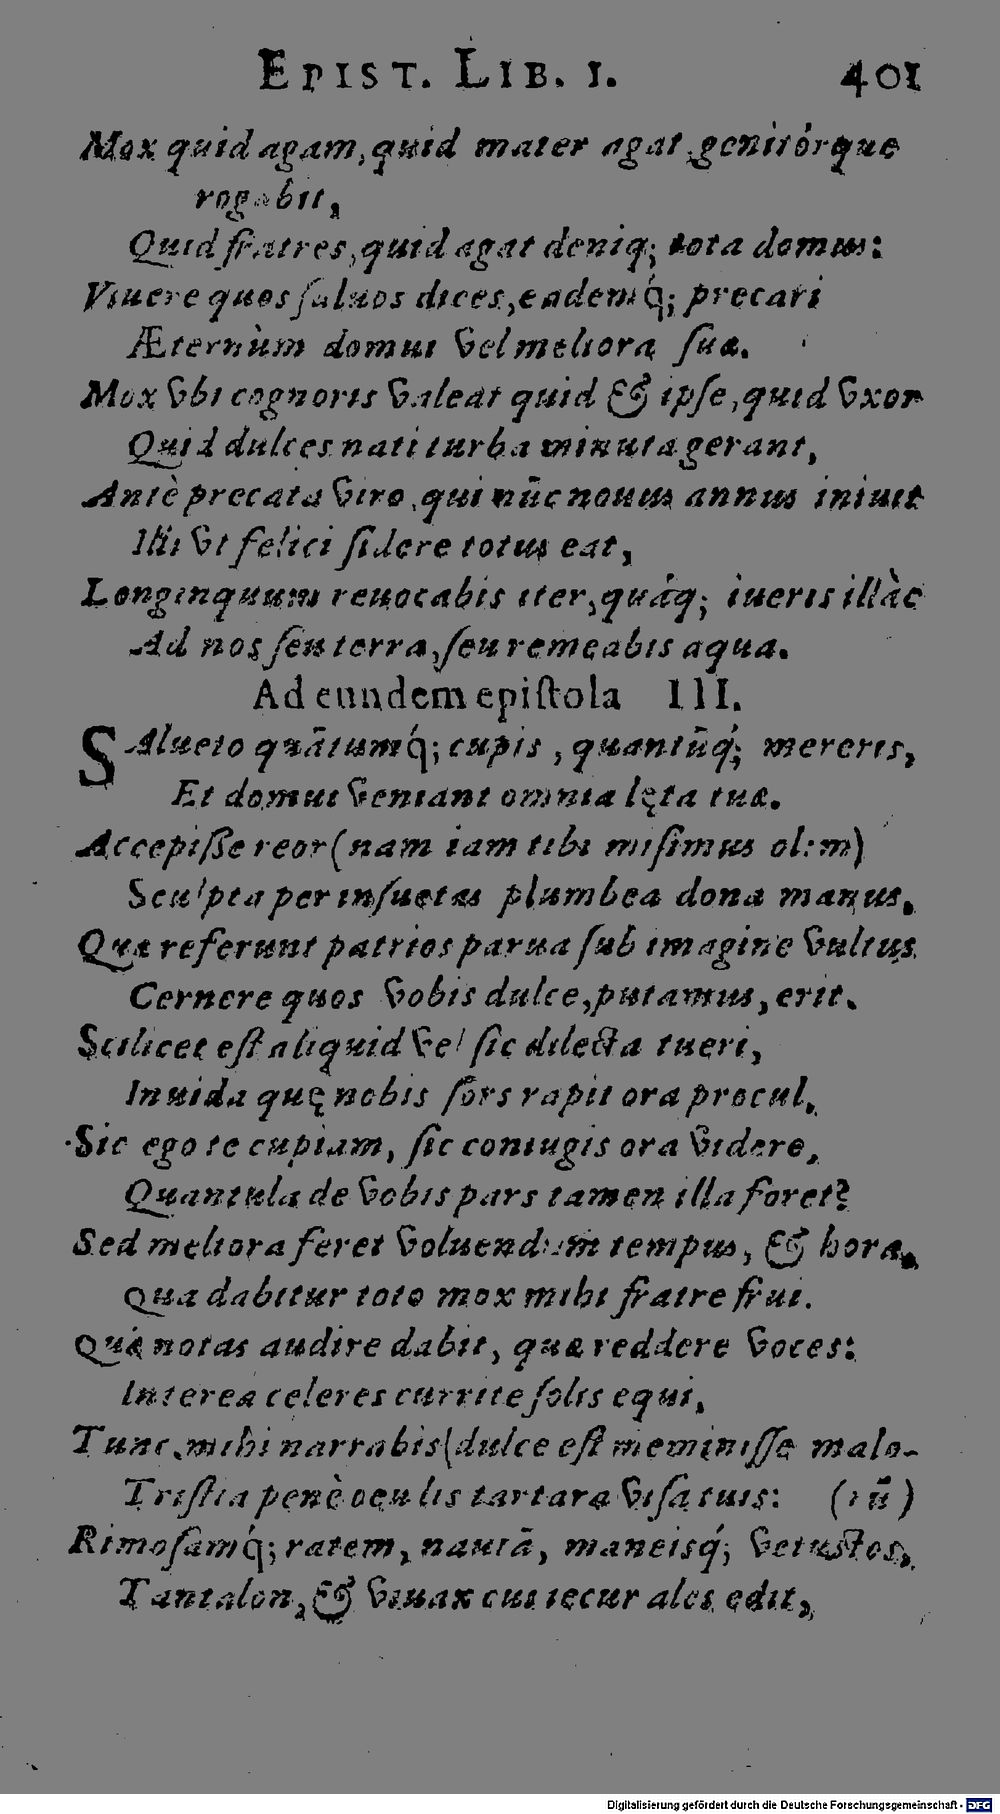 EPIST. LIB. I. 401
Mox quid agam, quid mater agat, genitórque
rogabit,
Quid fratres, quid agat deniq; tota domus:
Viuere quos saluos dices, eademq́; precari
Æternùm domui vel meliora suæ.
Mox vbi cognoris valeat quid & ipse, quid vxor
Quid dulces nati turba minuta gerant,
Antè precata viro, qui nũc nouus annus iniuit
Illi vt felici sidere totus eat,
Longinquum reuocabis iter, quáq; iueris illàc
Ad nos seu terra, seu remeabis aqua.
Ad eundem epistola III.
SAlueto quãtumq́; cupis, quantũq́; mereris,
Et domui veniant omnia lęta tuæ.
Accepisse reor (nam iam tibi misimus olim)
Sculpta per insuetas plumbea dona manus.
Quæ referunt patrios parua sub imagine vultus
Cernere quos vobis dulce, putamus, erit.
Scilicet est aliquid vel sic dilecta tueri,
Inuida quę nobis sors rapit ora procul.
Sic ego te cupiam, sic coniugis ora videre,
Quantula de vobis pars tamen illa foret?
Sed meliora feret voluendum tempus, & hora.
Qua dabitur toto mox mihi fratre frui.
Quæ notas audire dabit, quæ reddere voces:
Interea celeres currite solis equi,
Tunc mihi narrabis (dulce est meminisse malo-
Tristia penè oculis tartara visa tuis: (rũ)
Rimosamq́; ratem, nautã, maneisq́; vetustos,
Tantalon, & viuax cui iecur ales edit,
Digitalisierung gefördert durch die Deutsche Forschungsgemeinschaft - DFG